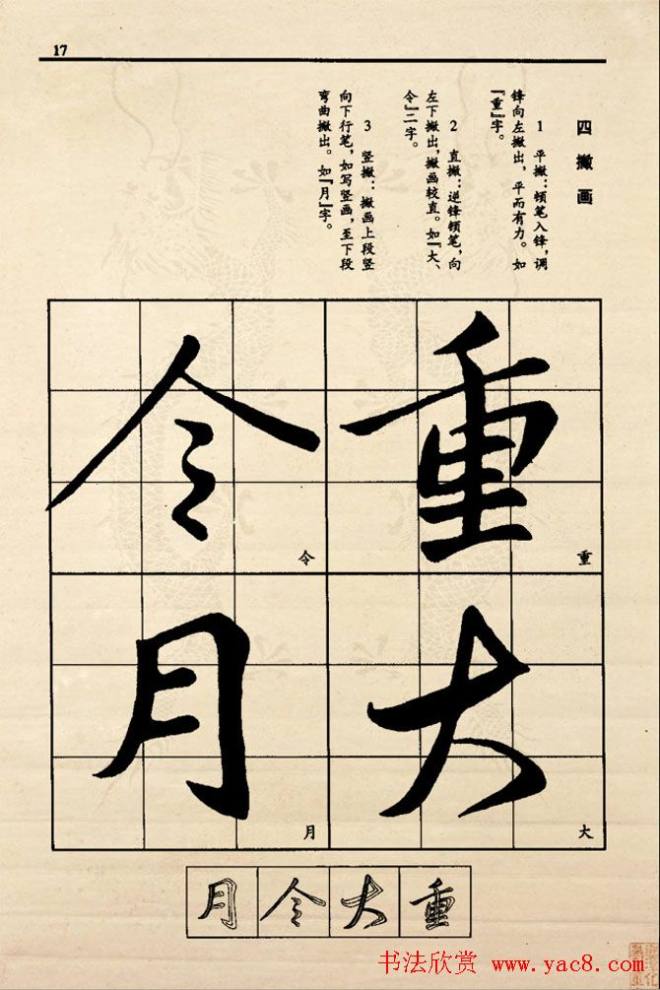 17
四 撇画
1 平撇：顿笔入锋，调
锋向左撇出，平而有力。如
『重』字。
2 直撇：逆锋顿笔，向
左下撇出，撇画较直。如『大、
令』二字。
3 竖撇：撇画上段竖
向下行笔，如写竖画，至下段
弯曲撇出。如『月』字。
重
重
大
大
令
令
月
月
月 令 大 重
书法欣赏 www.yac8.com